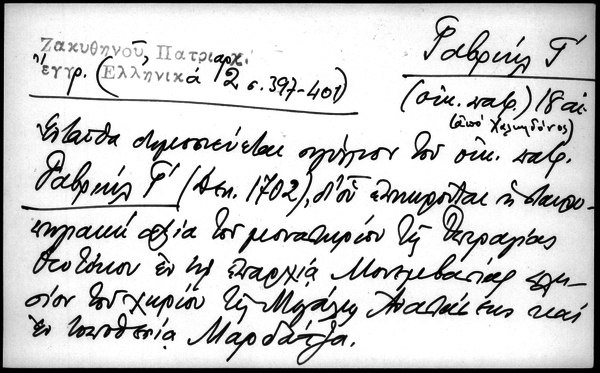 Ζακυθηνοῦ, Πατριαρχ.
ἔγγρ. (Ἑλληνικά 2 σ. 397-401)
Γαβριήλ Γ΄
(οἰκ. πατρ.) 18 αἰ.
(ἀπό Χαλκηδόνος)
Ἐνταῦθα δημοσιεύεται σιγίλλιον τοῦ οἰκ. πατρ.
Γαβριήλ Γ΄ (Δεκ. 1702), δι' οὗ ἐπικυροῦται ἡ σταυρο-
πηγιακή ἀξία τοῦ μοναστηρίου τῆς Ὑπεραγίας
Θεοτόκου ἐν τῇ ἐπαρχίᾳ Μονεμβασίας πλη-
σίον τοῦ χωρίου τῆς Μεγάλης Ἀναστάσεως καί
ἐν τοποθεσίᾳ Μαρδάτζα.